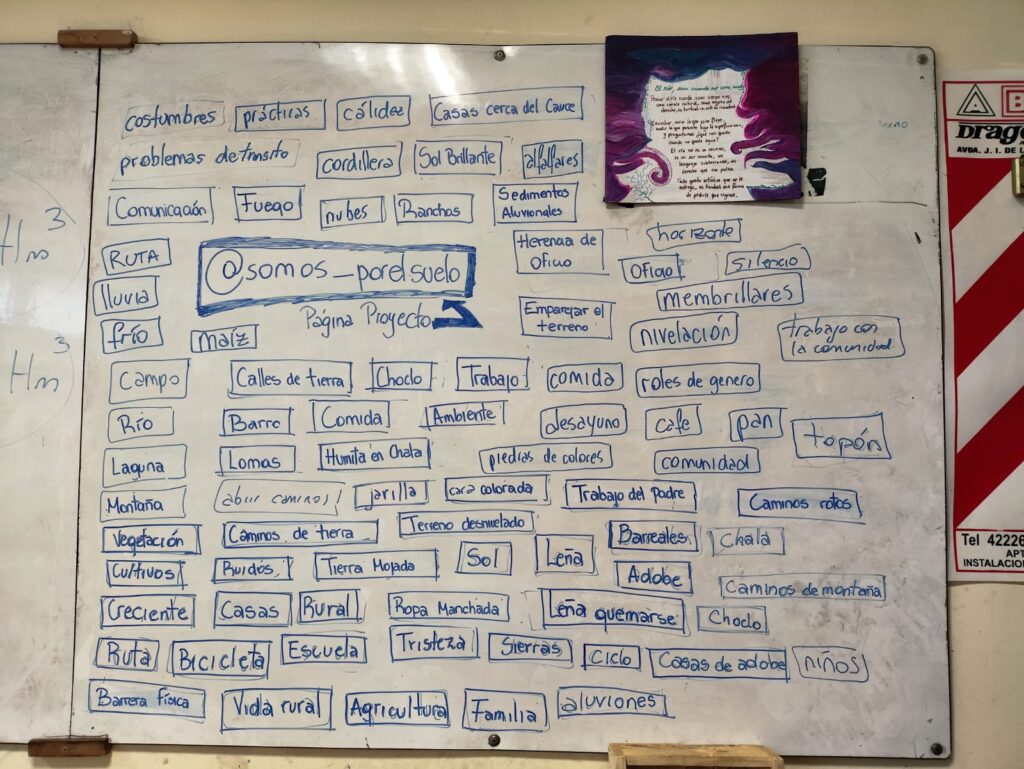 costumbres
prácticas
cálidez
Casas cerca del Cauce
problemas de tránsito
cordillera
Sol Brillante
alfalfares
Comunicación
Fuego
nubes
Ranchos
Sedimentos
Aluvionales
RUTA
@somos_porelsuelo
Página Proyecto
Herencia de
Oficio
horizonte
Oficio
Silencio
membrillares
lluvia
frío
maíz
Emparejar el
terreno
nivelación
trabajo con
la comunidad
Campo
Calles de tierra
Choclo
Trabajo
comida
roles de genero
Río
Barro
Comida
Ambiente
desayuno
cafe
pan
topón
Laguna
Lomas
Humita en Chala
piedras de colores
comunidad
Montaña
abrir caminos
jarilla
cara colorada
Trabajo del padre
Caminos rotos
Vegetación
Caminos de tierra
Terreno desnivelado
Barreales
Chala
Cultivos
Ruidos
Tierra Mojada
Sol
Leña
Adobe
Caminos de montaña
Creciente
Casas
Rural
Ropa Manchada
Leña quemarse
Choclo
Ruta
Bicicleta
Escuela
Tristeza
Sierras
Ciclo
Casas de adobe
niños
Barrera física
Vida rural
Agricultura
Familia
aluviones
Hm3
Hm3
Drago
AVDA. J. I. DE L
Tel 42226
APT
INSTALACION